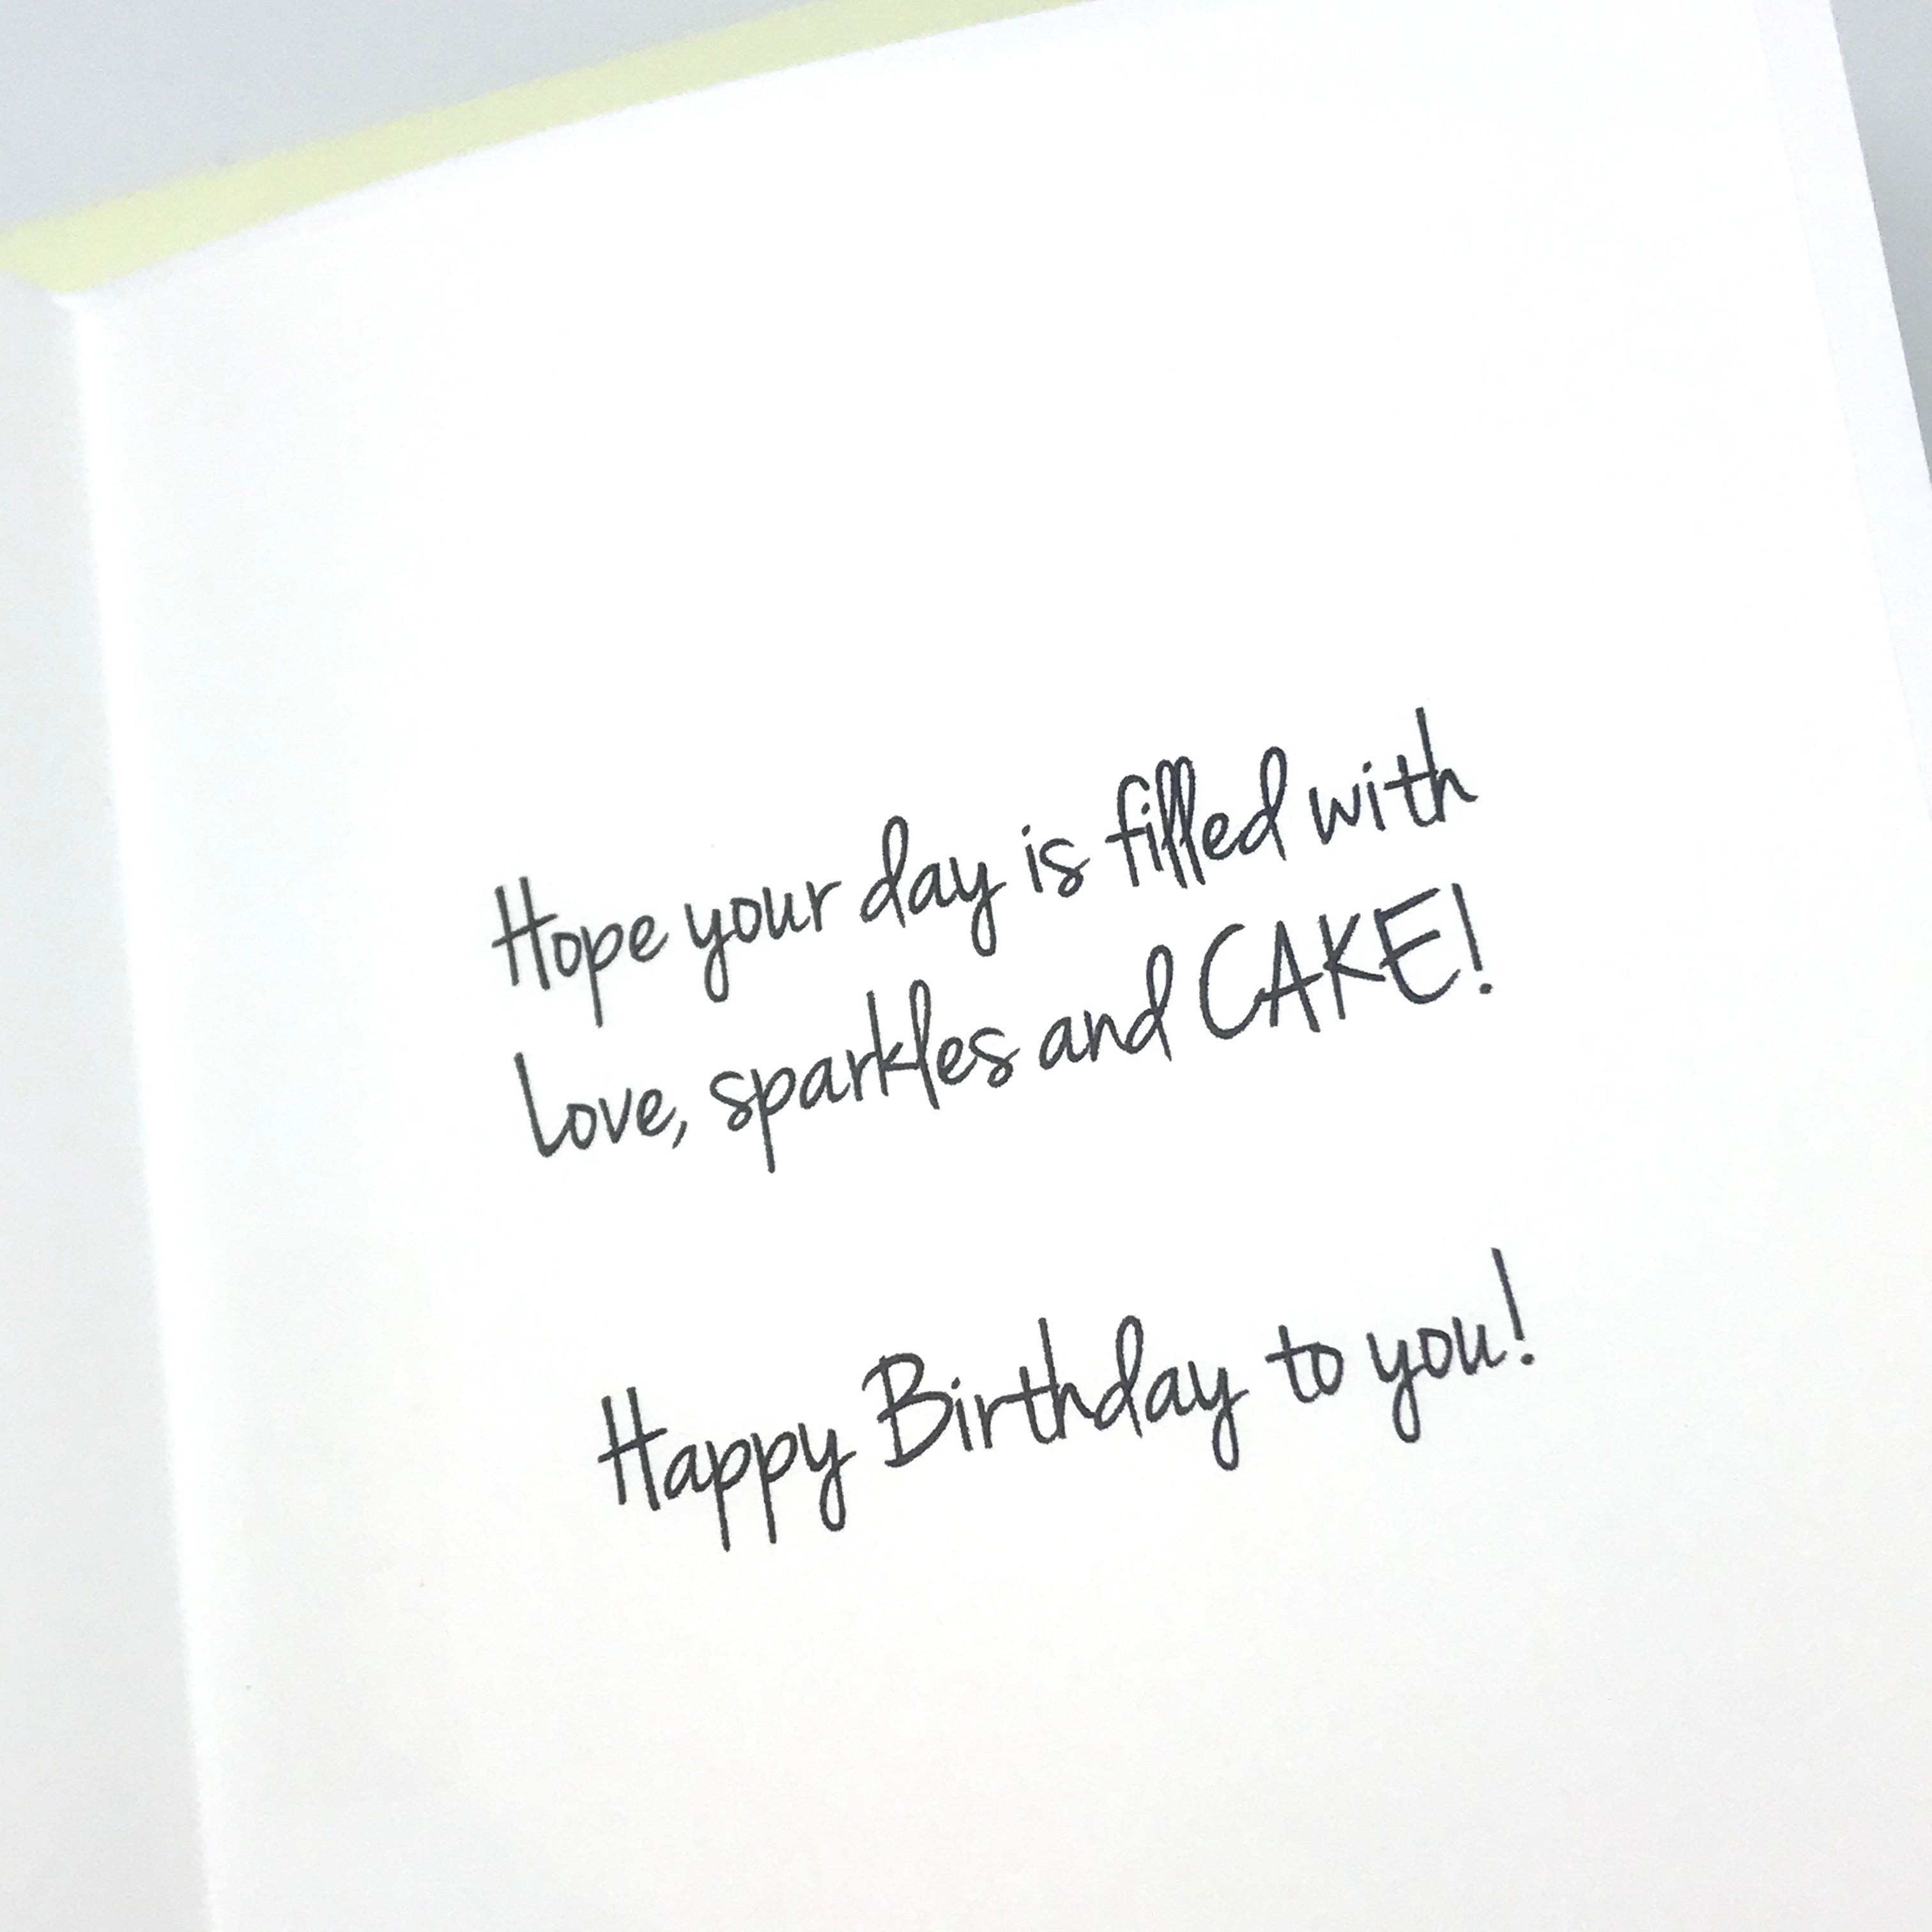 Hope your day is filled with
Love, sparkles and CAKE!
Happy Birthday to you!